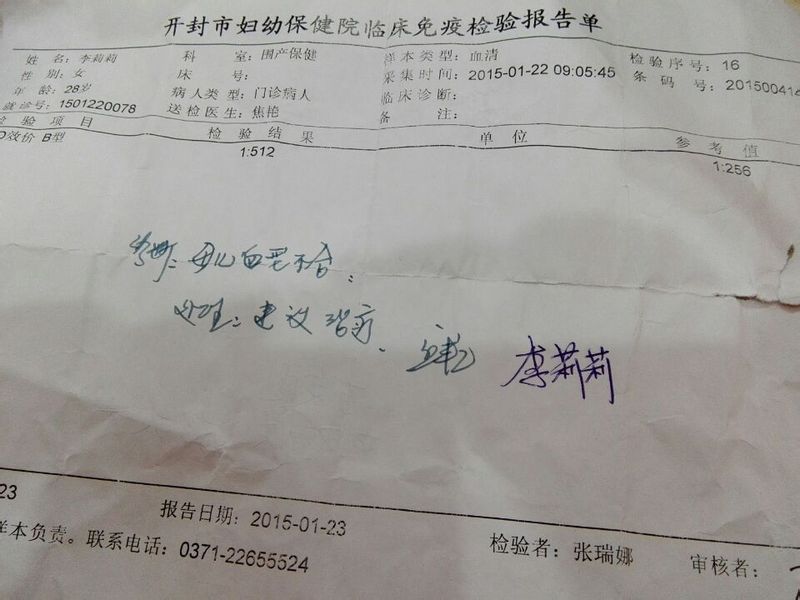 开封市妇幼保健院临床免疫检验报告单
姓 名：李莉莉 科 室：围产保健 样本类型：血清 检验序号：16
性 别：女 床 号： 采集时间：2015-01-22 09:05:45 条 码 号：201500414
年 龄：28岁 病人类型：门诊病人 临床诊断：
就诊号：1501220078 送检医生：焦艳 备 注：
检验项目 检 验 结 果 单 位 参 考 值
效价 B型 1:512 1:256
母儿血型不合
处理：建议治疗
李莉莉
23 报告日期：2015-01-23 检验者：张瑞娜 审核者：
样本负责。联系电话：0371-22655524